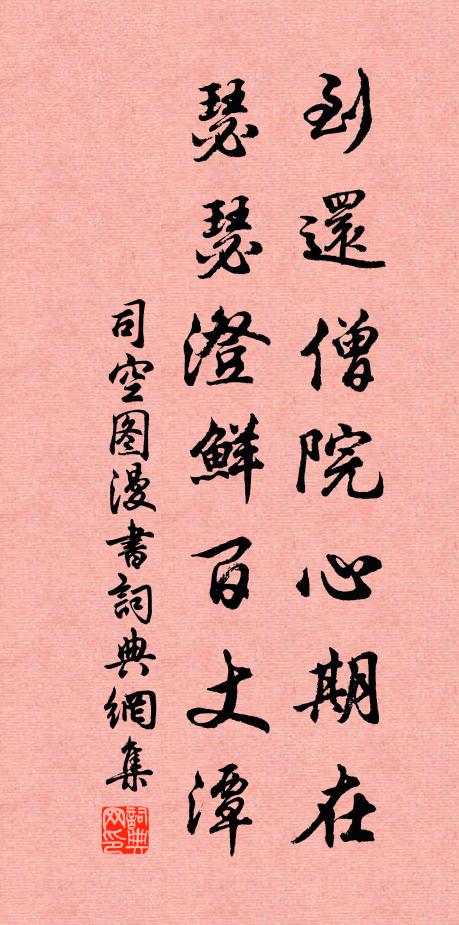 到還僧院心期在
瑟瑟澄鮮百丈潭
司空图漫書詞典網集
詞典网印